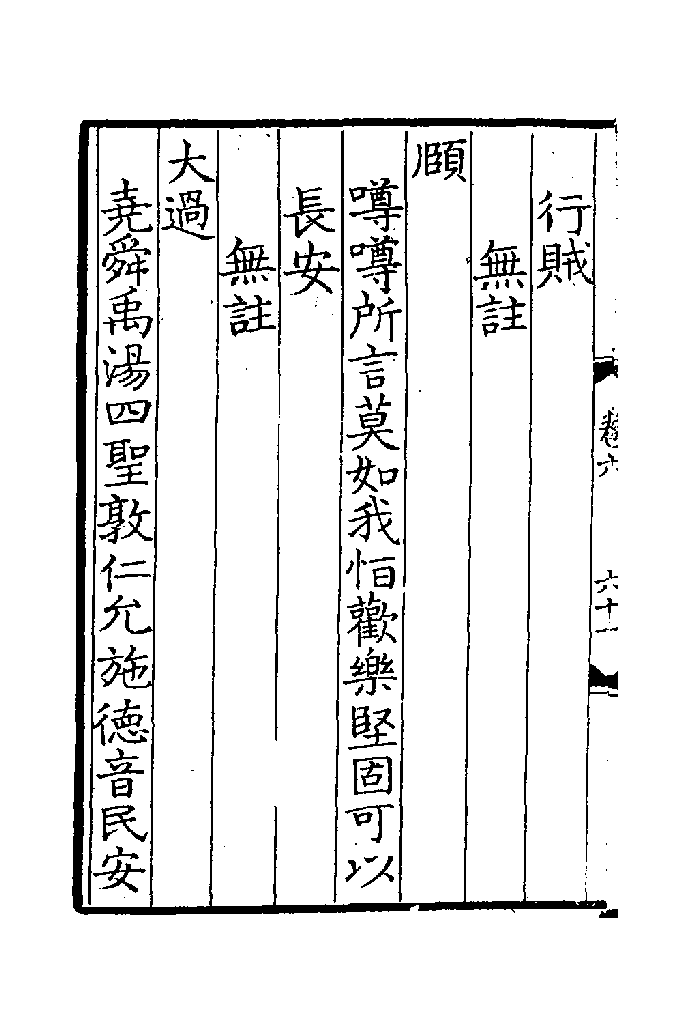 卷六
六十一
行賊
無註
頤
噂噂所言莫如我怕歡樂堅固可以
長安
無註
大過
堯舜禹湯四聖敦仁允施德音民安